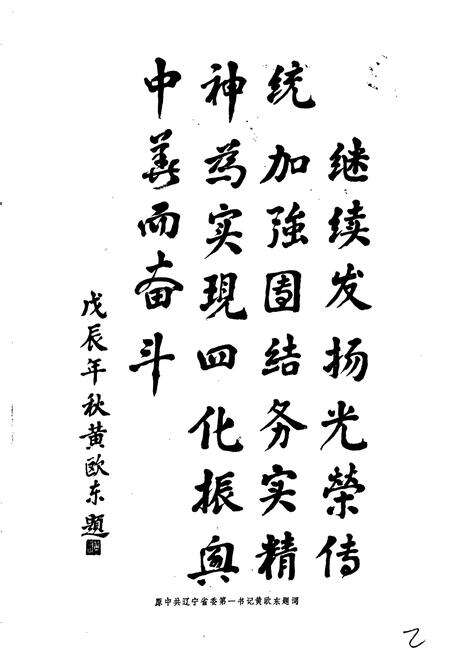 继续发扬光榮传
统加強團结务实精
神為实現四化振興
中華而奋斗
戊辰年秋黄欧东題
原中共辽宁省委第一书记黄欧东题词